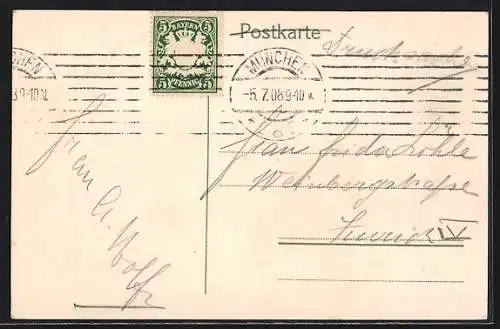 Postkarte
Drucksache
BAYERN
5 5
PFENNIG
5 5
MÜNCHEN
-5.7.08 9-10 V.
CHEN
8 9-10 V.
Frau Frida Löhle
Weinbergstraße
Zürich IV
Frau A. Wolff